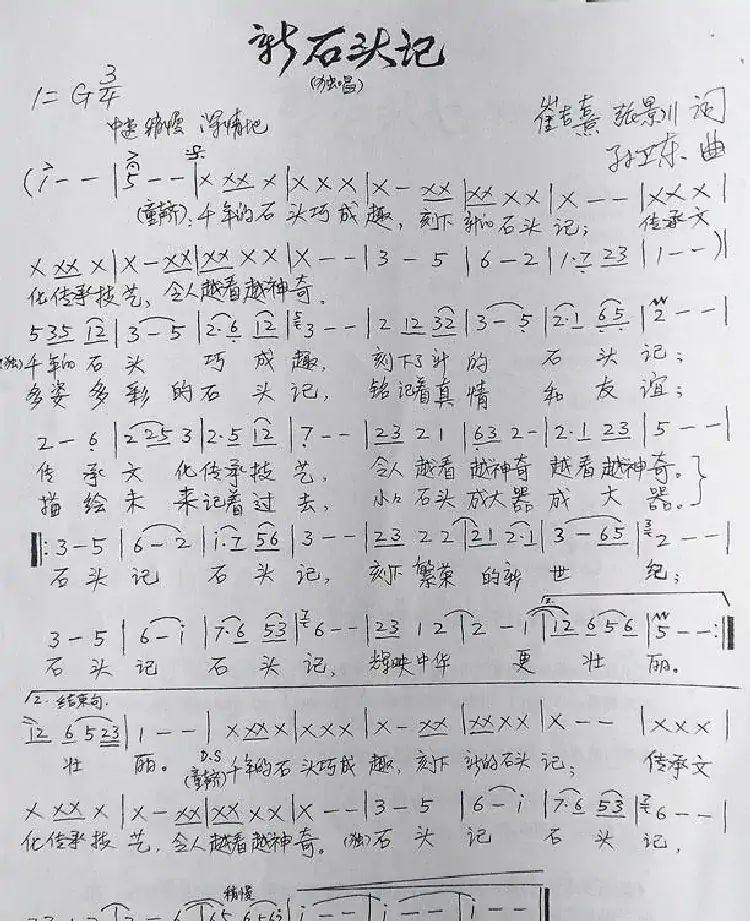 新石头记
(独唱)
1=G 3/4
中速 稍慢 深情地
崔吉熹 张景川 词
孙卫东 曲
(i - - | 5 - - | X XX X | X X X | X - XX | XX X X | X - - | X X X |
(童声):千年的石头巧成趣,刻下新的石头记;传承文
X XX X | X - XX | XX X X | X - - | 3 - 5 | 6 - 2 | 1·7 23 | 1 - - )|
化传承技艺,令人越看越神奇.
5 35 12 | 3 - 5 | 2·6 12 | 3 - - | 2 12 32 | 3 - 5 | 2·1 65 | 2 - - |
(独)千年的石头巧成趣,刻下了新的石头记;
多姿多彩的石头记,铭记着真情和友谊;
2 - 6 | 2 25 3 | 2·5 12 | 7 - - | 23 2 1 | 63 2 - | 2·1 23 | 5 - - |
传承文化传承技艺,令人越看越神奇越看越神奇。
描绘未来记着过去,小小石头成大器成大器。
‖: 3 - 5 | 6 - 2 | i·7 56 | 3 - - | 23 2 2 | 21 2·1 | 3 - 65 | 2 - - |
石头记石头记,刻下繁荣的新世纪;
3 - 5 | 6 - i | 7·6 53 | 6 - - | 23 1 2 | 2 - 1 | 12 6 5 6 | 5 - - :‖
石头记石头记,辉映中华更壮丽。
2. 结束句.
12 6 5 23 | 1 - - | X XX X | X X X | X - XX | XX X X | X - - | X X X |
壮丽。D.S (童声)千年的石头巧成趣,刻下新的石头记;传承文
X XX X | X - XX | XX X X | X - - | 3 - 5 | 6 - i | 7·6 53 | 6 - - |
化传承技艺,令人越看越神奇。(独)石头记石头记,
稍慢